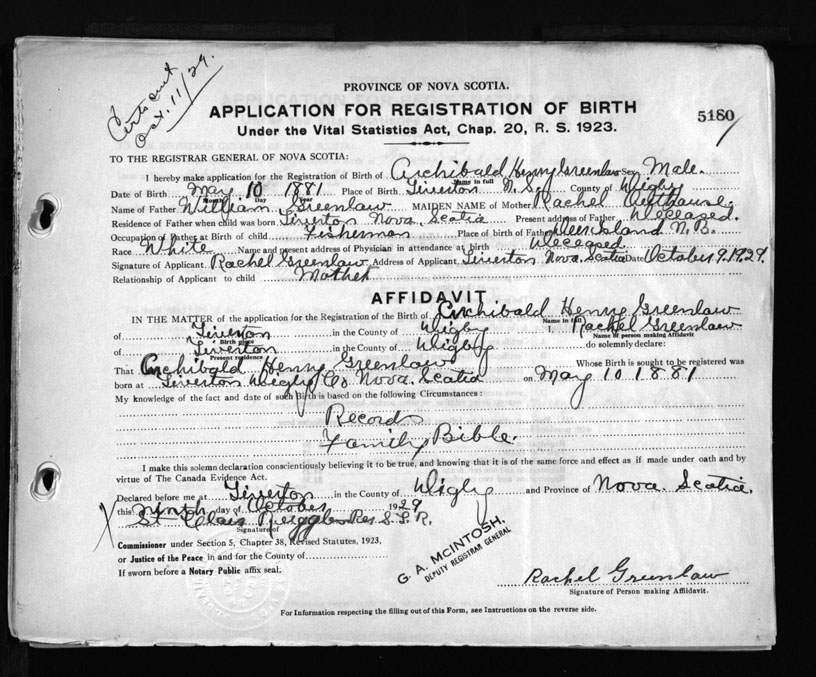 Certs out
Oct. 11/29.
PROVINCE OF NOVA SCOTIA.
APPLICATION FOR REGISTRATION OF BIRTH
5180
Under the Vital Statistics Act, Chap. 20, R. S. 1923.
TO THE REGISTRAR GENERAL OF NOVA SCOTIA:
I hereby make application for the Registration of Birth of Archibald Henry Greenlaw Sex Male.
Name in full
Date of Birth May 10 1881 Place of Birth Tiverton N. S. County of Digby
Month Day Year
Name of Father William Greenlaw MAIDEN NAME of Mother Rachel Outhouse.
Residence of Father when child was born Tiverton Nova. Scotia Present address of Father Deceased.
Occupation of Father at Birth of child Fisherman Place of birth of Father N. B.
Race White Name and present address of Physician in attendance at birth Deceased
Signature of Applicant Rachel Greenlaw Address of Applicant Tiverton Nova. Scotia Date October 9. 1929.
Relationship of Applicant to child Mother
AFFIDAVIT
IN THE MATTER of the application for the Registration of the Birth of Archibald Henry Greenlaw
Name in full
of Tiverton in the County of Digby I, Rachel Greenlaw
Birth place Name of person making Affidavit
of Tiverton in the County of Digby do solemnly declare:
Present residence
That Archibald Henry Greenlaw Whose Birth is sought to be registered was
born at Tiverton Digby Co Nova. Scotia on May 10 1881
My knowledge of the fact and date of such Birth is based on the following Circumstances:
Records
Family Bible.
I make this solemn declaration conscientiously believing it to be true, and knowing that it is of the same force and effect as if made under oath and by
virtue of The Canada Evidence Act.
Declared before me at Tiverton in the County of Digby and Province of Nova. Scotia.
this ninth day of October 1929
X St. Clair Ruggles
Signature of
Commissioner under Section 5, Chapter 38, Revised Statutes, 1923.
or Justice of the Peace in and for the County of
If sworn before a Notary Public affix seal.
G. A. McINTOSH,
DEPUTY REGISTRAR GENERAL
Rachel Greenlaw
Signature of Person making Affidavit.
For Information respecting the filling out of this Form, see Instructions on the reverse side.